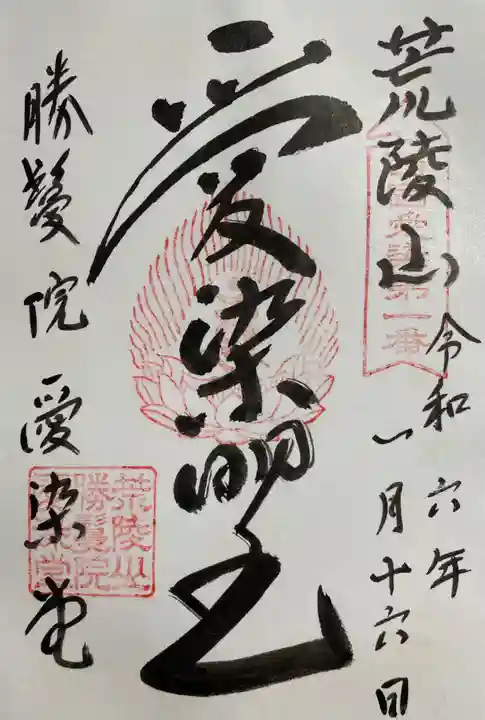 荒陵山
令和六年
一月十六日
愛染明王
勝鬘院愛染堂
第一番
荒陵山
勝鬘院
愛染堂